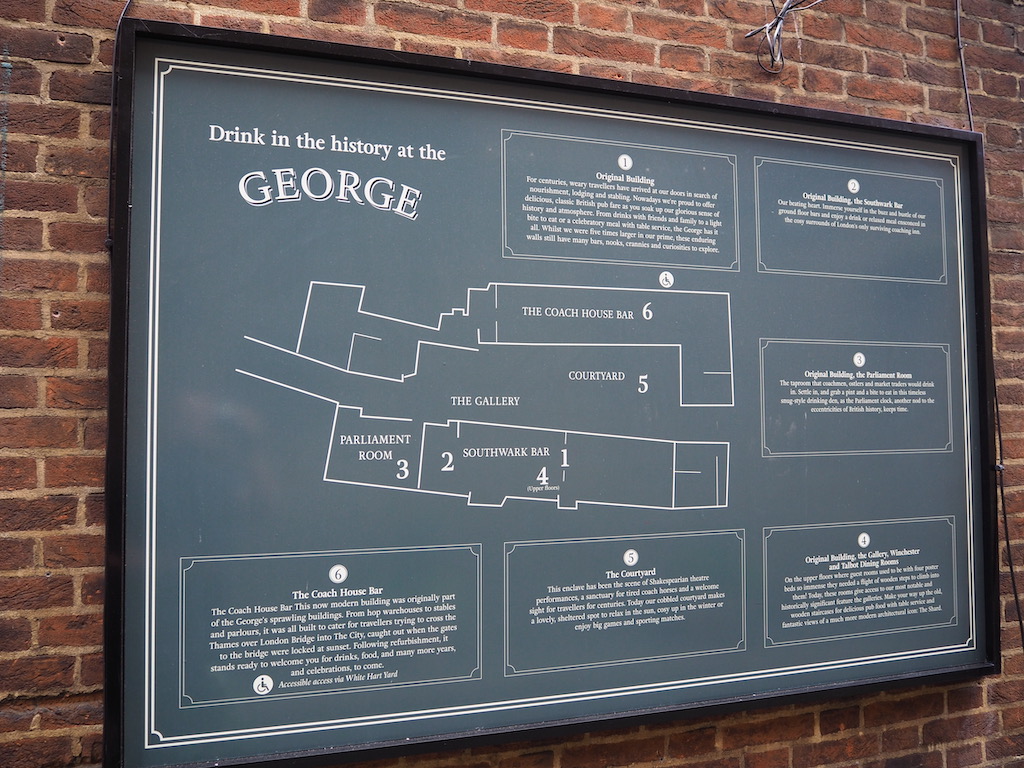 Drink in the history at the
GEORGE
1
Original Building
For centuries, weary travellers have arrived at our doors in search of
nourishment, lodging and stabling. Nowadays we're proud to offer
delicious, classic British pub fare as you soak up our glorious sense of
history and atmosphere. From drinks with friends and family to a light
bite to eat or a celebratory meal with table service, the George has it
all. Whilst we were five times larger in our prime, these enduring
walls still have many bars, nooks, crannies and curiosities to explore.
2
Original Building, the Southwark Bar
Our beating heart. Immerse yourself in the buzz and bustle of our
ground floor bars and enjoy a drink or relaxed meal ensconced in
the cosy surrounds of London's only surviving coaching inn.
THE COACH HOUSE BAR 6
COURTYARD 5
THE GALLERY
PARLIAMENT
ROOM 3
2 SOUTHWARK BAR 1
4
(Upper floors)
3
Original Building, the Parliament Room
The taproom that coachmen, ostlers and market traders would drink
in. Settle in, and grab a pint and a bite to eat in this timeless
snug-style drinking den, as the Parliament clock, another nod to the
eccentricities of British history, keeps time.
6
The Coach House Bar
The Coach House Bar This now modern building was originally part
of the George's sprawling buildings. From hop warehouses to stables
and parlours, it was all built to cater for travellers trying to cross the
Thames over London Bridge into The City, caught out when the gates
to the bridge were locked at sunset. Following refurbishment, it
stands ready to welcome you for drinks, food, and many more years,
and celebrations, to come.
Accessible access via White Hart Yard
5
The Courtyard
This enclave has been the scene of Shakespearian theatre
performances, a sanctuary for tired coach horses and a welcome
sight for travellers for centuries. Today our cobbled courtyard makes
a lovely, sheltered spot to relax in the sun, cosy up in the winter or
enjoy big games and sporting matches.
4
Original Building, the Gallery, Winchester
and Talbot Dining Rooms
On the upper floors where guest rooms used to be with four poster
beds so immense they needed a flight of wooden steps to climb into
them! Today, these rooms give access to our most notable and
historically significant feature the galleries. Make your way up the old,
wooden staircases for delicious pub food with table service and
fantastic views of a much more modern architectural icon: The Shard.